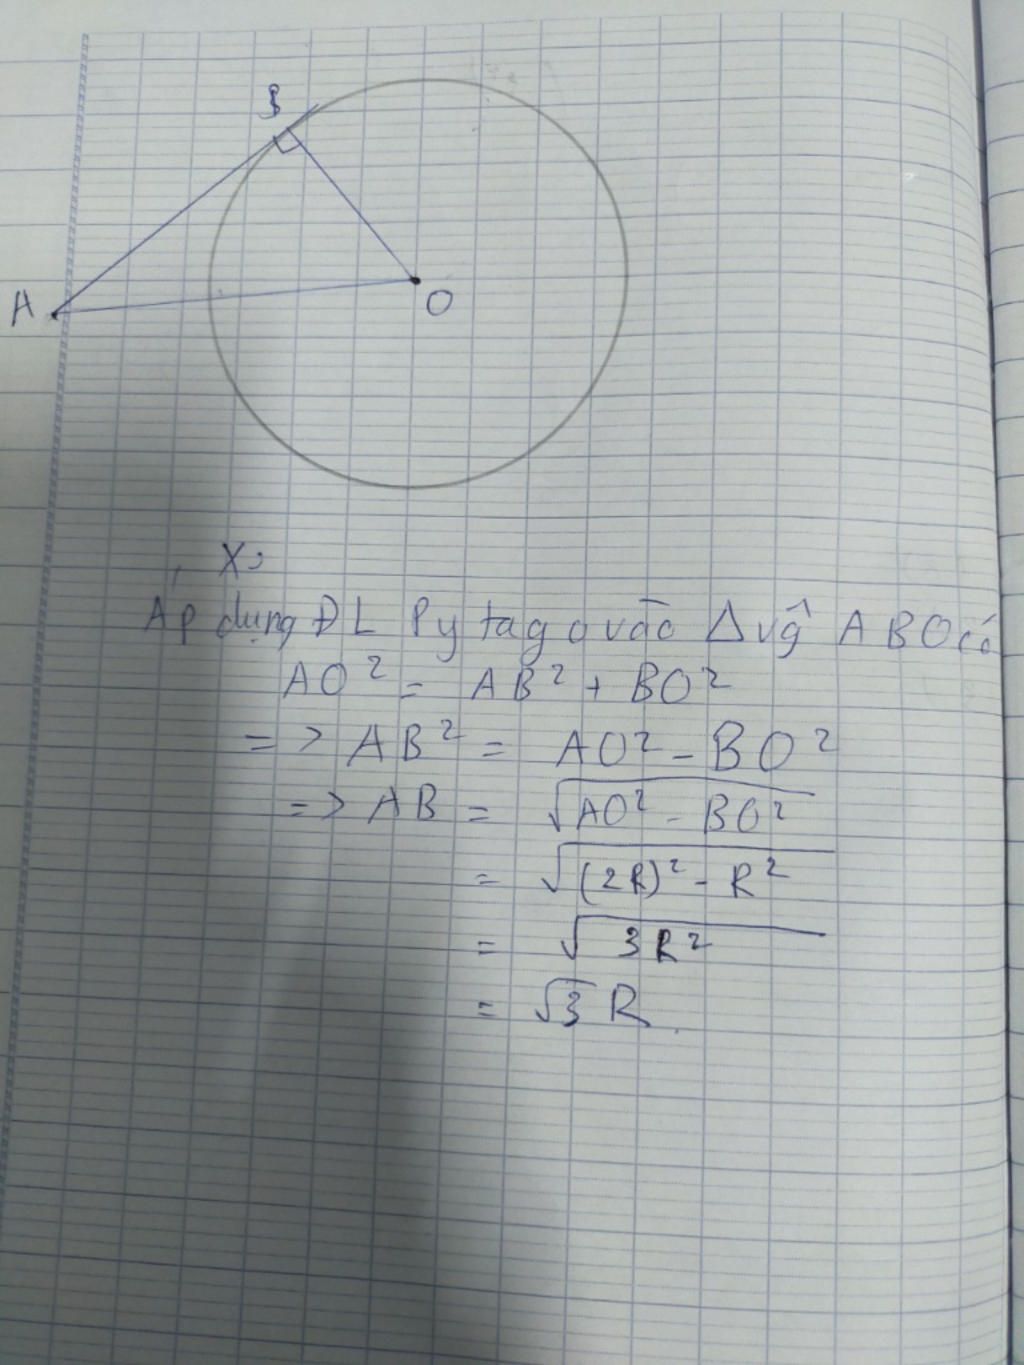 B
A
O
Xo
Áp dụng ĐL Pytago vào Δ vg ABO có
AO² = AB² + BO²
=> AB² = AO² - BO²
=> AB = √AO² - BO²
= √(2R)² - R²
= √3R²
= √3 R